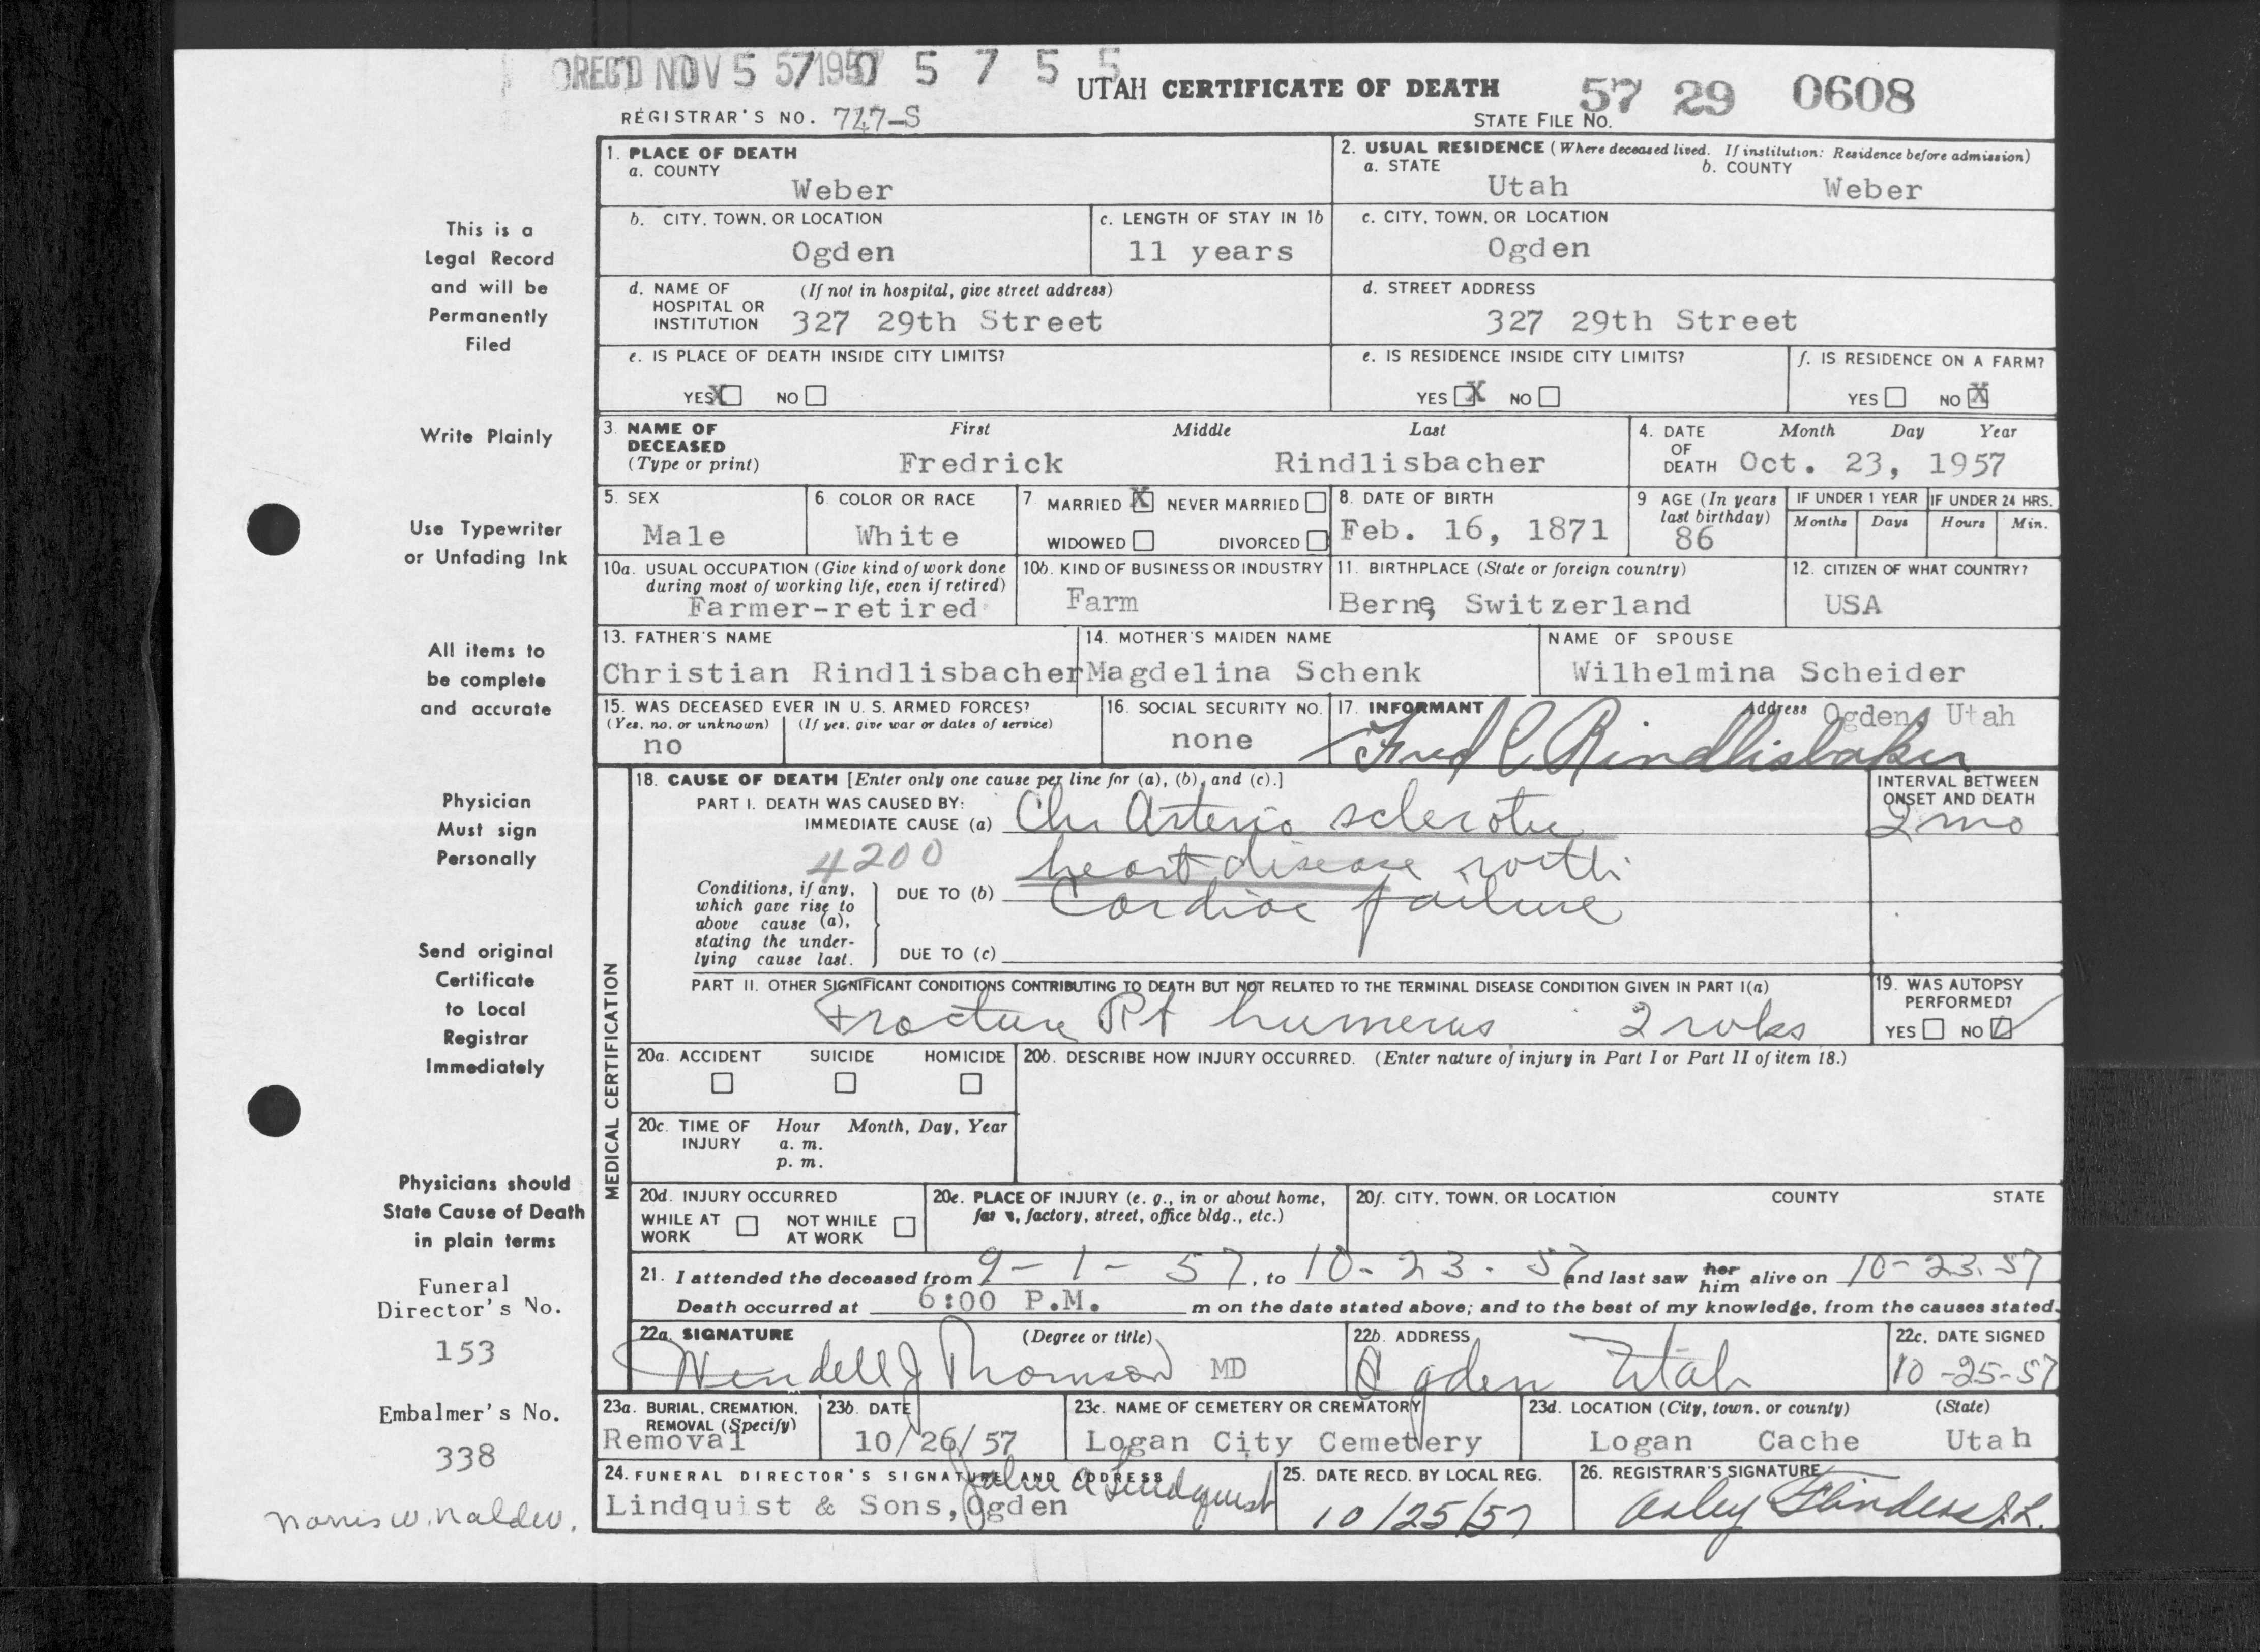 RECD NOV 5 1957 0 5 7 5 5
UTAH CERTIFICATE OF DEATH 57 29 0608
REGISTRAR'S NO. 747-S STATE FILE NO.
1. PLACE OF DEATH
a. COUNTY
Weber
2. USUAL RESIDENCE (Where deceased lived. If institution: Residence before admission)
a. STATE b. COUNTY
Utah Weber
b. CITY, TOWN, OR LOCATION
Ogden
c. LENGTH OF STAY IN 1b
11 years
c. CITY, TOWN, OR LOCATION
Ogden
d. NAME OF (If not in hospital, give street address)
HOSPITAL OR
INSTITUTION 327 29th Street
d. STREET ADDRESS
327 29th Street
e. IS PLACE OF DEATH INSIDE CITY LIMITS?
YES X NO
e. IS RESIDENCE INSIDE CITY LIMITS?
YES X NO
f. IS RESIDENCE ON A FARM?
YES NO X
3. NAME OF First Middle Last
DECEASED
(Type or print) Fredrick Rindlisbacher
4. DATE Month Day Year
OF
DEATH Oct. 23, 1957
5. SEX
Male
6. COLOR OR RACE
White
7 MARRIED X NEVER MARRIED
WIDOWED DIVORCED
8. DATE OF BIRTH
Feb. 16, 1871
9 AGE (In years
last birthday)
86
IF UNDER 1 YEAR IF UNDER 24 HRS.
Months Days Hours Min.
10a. USUAL OCCUPATION (Give kind of work done
during most of working life, even if retired)
Farmer-retired
10b. KIND OF BUSINESS OR INDUSTRY
Farm
11. BIRTHPLACE (State or foreign country)
Berne, Switzerland
12. CITIZEN OF WHAT COUNTRY?
USA
13. FATHER'S NAME
Christian Rindlisbacher
14. MOTHER'S MAIDEN NAME
Magdelina Schenk
NAME OF SPOUSE
Wilhelmina Scheider
15. WAS DECEASED EVER IN U. S. ARMED FORCES?
(Yes, no, or unknown) (If yes, give war or dates of service)
no
16. SOCIAL SECURITY NO.
none
17. INFORMANT Address Ogden, Utah
Fred C. Rindlisbaker
MEDICAL CERTIFICATION
18. CAUSE OF DEATH [Enter only one cause per line for (a), (b), and (c).]
PART I. DEATH WAS CAUSED BY:
IMMEDIATE CAUSE (a) Chr Arterio sclerotic
4200 heart disease with
Conditions, if any,
which gave rise to
above cause (a),
stating the under-
lying cause last.
DUE TO (b) Cardiac failure
DUE TO (c)
INTERVAL BETWEEN
ONSET AND DEATH
2 mo
PART II. OTHER SIGNIFICANT CONDITIONS CONTRIBUTING TO DEATH BUT NOT RELATED TO THE TERMINAL DISEASE CONDITION GIVEN IN PART I(a)
Fracture Rt humerus 2 wks
19. WAS AUTOPSY
PERFORMED?
YES NO
20a. ACCIDENT SUICIDE HOMICIDE
20b. DESCRIBE HOW INJURY OCCURRED. (Enter nature of injury in Part I or Part II of item 18.)
20c. TIME OF Hour Month, Day, Year
INJURY a. m.
p. m.
20d. INJURY OCCURRED
WHILE AT NOT WHILE
WORK AT WORK
20e. PLACE OF INJURY (e. g., in or about home,
factory, street, office bldg., etc.)
20f. CITY, TOWN, OR LOCATION COUNTY STATE
21. I attended the deceased from 9-1-57, to 10-23-57 and last saw her him alive on 10-23.57
Death occurred at 6:00 P.M. m on the date stated above; and to the best of my knowledge, from the causes stated.
22a. SIGNATURE (Degree or title)
Wendell J Thomson MD
22b. ADDRESS
Ogden Utah
22c. DATE SIGNED
10-25-57
23a. BURIAL, CREMATION,
REMOVAL (Specify)
Removal
23b. DATE
10/26/57
23c. NAME OF CEMETERY OR CREMATORY
Logan City Cemetery
23d. LOCATION (City, town, or county) (State)
Logan Cache Utah
24. FUNERAL DIRECTOR'S SIGNATURE AND ADDRESS
John A Lindquist
Lindquist & Sons, Ogden
25. DATE RECD. BY LOCAL REG.
10/25/57
26. REGISTRAR'S SIGNATURE
Flinders
This is a
Legal Record
and will be
Permanently
Filed
Write Plainly
Use Typewriter
or Unfading Ink
All items to
be complete
and accurate
Physician
Must sign
Personally
Send original
Certificate
to Local
Registrar
Immediately
Physicians should
State Cause of Death
in plain terms
Funeral
Director's No.
153
Embalmer's No.
338
Norris W. Nalder.